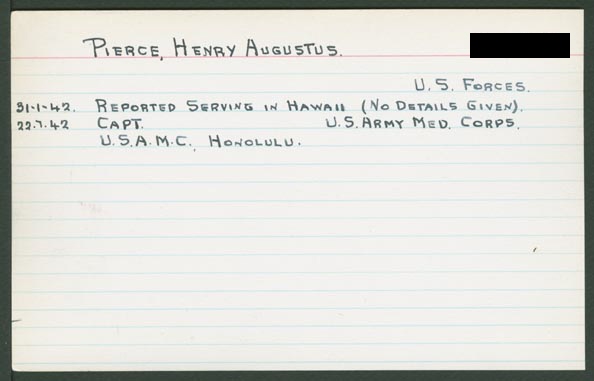 PIERCE, HENRY AUGUSTUS.
U.S. FORCES.
31-1-42. REPORTED SERVING IN HAWAII (NO DETAILS GIVEN).
22.7.42 CAPT. U.S. ARMY MED. CORPS.
U.S.A.M.C., HONOLULU.